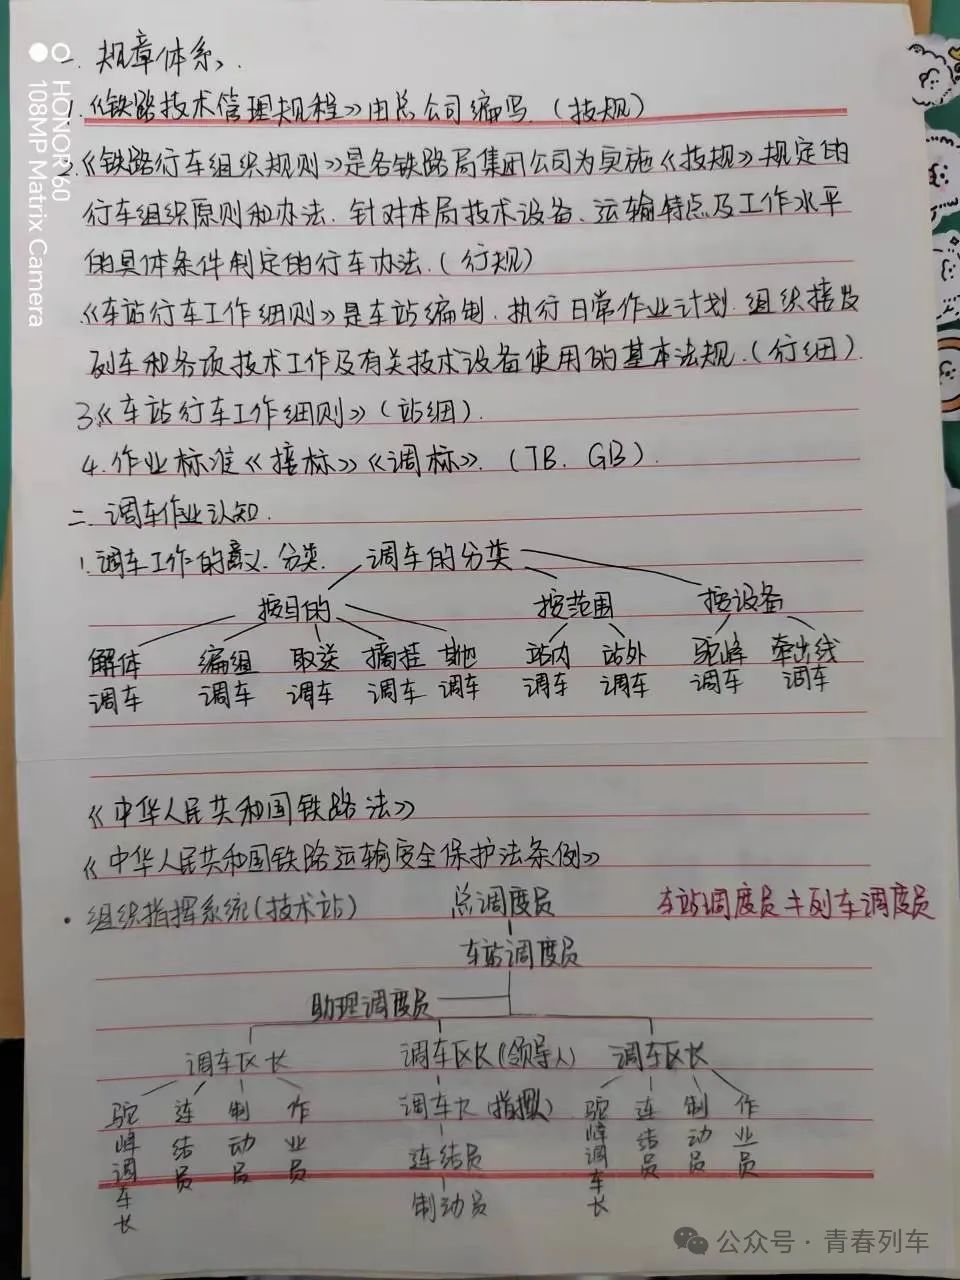 HONOR X60
108MP Matrix Camera
一、规章体系、
1.《铁路技术管理规程》由总公司编写.(技规)
2.《铁路行车组织规则》是各铁路局集团公司为实施《技规》规定的
行车组织原则和办法.针对本局技术设备、运输特点及工作水平
的具体条件制定的行车办法.(行规)
《车站行车工作细则》是车站编制.执行日常作业计划.组织接发
列车和各项技术工作及有关技术设备使用的基本法规.(行细).
3.《车站行车工作细则》(站细).
4.作业标准《接标》《调标》.(TB.GB).
二、调车作业认知.
1.调车工作的意义.分类. 调车的分类
按目的 按范围 按设备
解体 编组 取送 摘挂 其他 站内 站外 驼峰 牵出线
调车 调车 调车 调车 调车 调车 调车 调车 调车
《中华人民共和国铁路法》
《中华人民共和国铁路运输安全保护法条例》
·组织指挥系统(技术站) 总调度员 车站调度员≠列车调度员
车站调度员
助理调度员
调车区长 调车区长(领导人) 调车区长
驼峰调车长 连结员 制动员 作业员 调车长(指挥) 驼峰调车长 连结员 制动员 作业员
连结员
制动员
公众号·青春列车